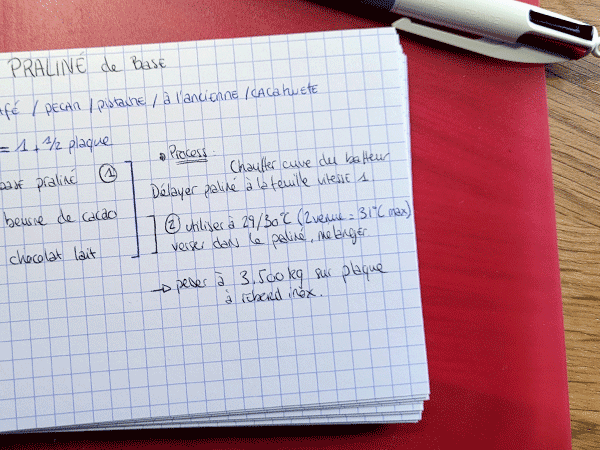 PRALINÉ de BASE
afé / PECAN / pistache / à l'ancienne / CACAHUETE
= 1 + 1/2 plaque
base praliné ①
beurre de cacao
chocolat lait
• Process :
Chauffer cuve du batteur
Délayer praliné à la feuille vitesse 1
② utiliser à 29/30°C (2 venue = 31°C max)
verser dans le praliné, mélanger
→ peser à 3,500kg sur plaque
à rebord inox.